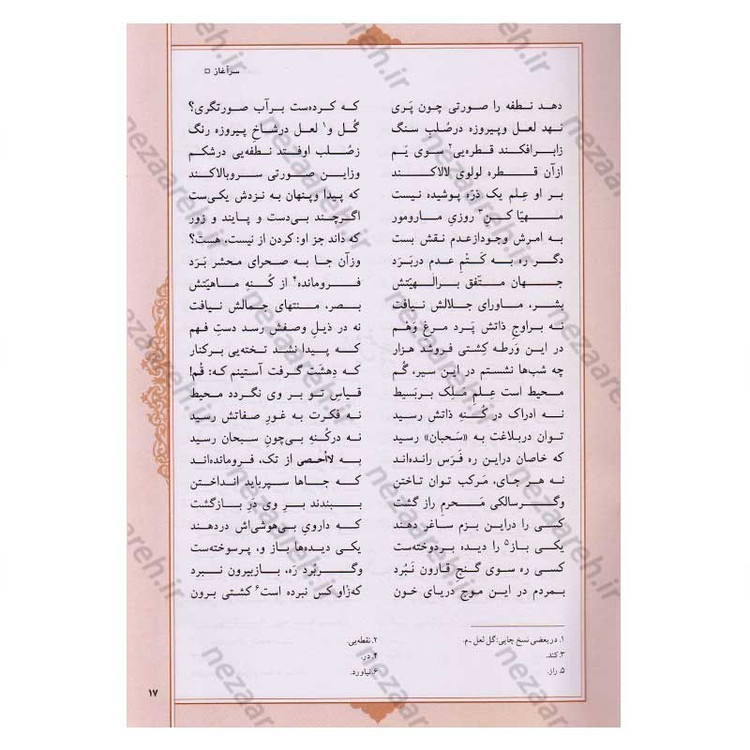 سرآغاز □
دهد نطفه را صورتی چون پَری که کرده‌ست برآب صورتگری؟
نهد لعل وپیروزه درصُلبِ سنگ گُل و۱ لعل درشاخِ پیروزه رنگ
زابرافکند قطره‌یی۲ سوی یَم زصُلب اوفتد نطفه‌یی درشکم
ازآن قطره لولوی لالاکند وزاین صورتی سروبالاکند
بر او عِلم یک ذرّه پوشیده نیست که پیدا وپنهان به نزدش یکی‌ست
مهیّا کنِ۳ روزیِ مارومور اگرچند بی‌دست و پایند و زور
به امرش وجودازعدم نقش بست که داند جز او: کردن از نیست، هست؟
دگر ره به کَتْمِ عدم دربَرد وزآن جا به صحرای محشر بَرَد
جهان متّفق برالهیّتش فرومانده۴ از کُنهِ ماهیّتش
بشر، ماورای جلالش نیافت بصر، منتهای جمالش نیافت
نه براوجِ ذاتش پَرد مرغِ وَهم نه در ذیلِ وصفش رسد دستِ فهم
در این وَرطه کِشتی فروشد هزار که پیدا نشد تخته‌یی برکنار
چه شب‌ها نشستم در این سیر، گُم که دِهشت گرفت آستینم که: قُم!
محیط است عِلمِ مَلِک بربَسیط قیاسِ تو بر وی نگردد محیط
نه ادراک در کُنهِ ذاتش رسید نه فکرت به غورِ صفاتش رسید
توان دربلاغت به «سَحبان» رسید نه درکُنهِ بی‌چونِ سبحان رسید
که خاصان دراین ره فَرَس رانده‌اند به لااُحصی از تک، فرومانده‌اند
نه هر جای، مَرکب توان تاختن که جاها سپرباید انداختن
وگرسالکی مَحرمِ راز گشت ببندند برِ وی درِ بازگشت
کسی را دراین بزم ساغر دهند که داروی بی‌هوشی‌اش دردهند
یکی باز۵ را دیده بردوخته‌ست یکی دیده‌ها باز و، پرسوخته‌ست
کسی ره سوی گنجِ قارون نَبُرد وگربُرد رَه، بازبیرون نبرد
بمردم در این موجِ دریای خون که‌زاو کس نبرده است۶ کشتی برون
۱. دربعضی نسخ چاپی: گل لعل ـ م. ۲. نقطه‌یی.
۳. کند. ۴. در.
۵. راز. ۶. نیاورد.
۱۷
nezaareh.ir